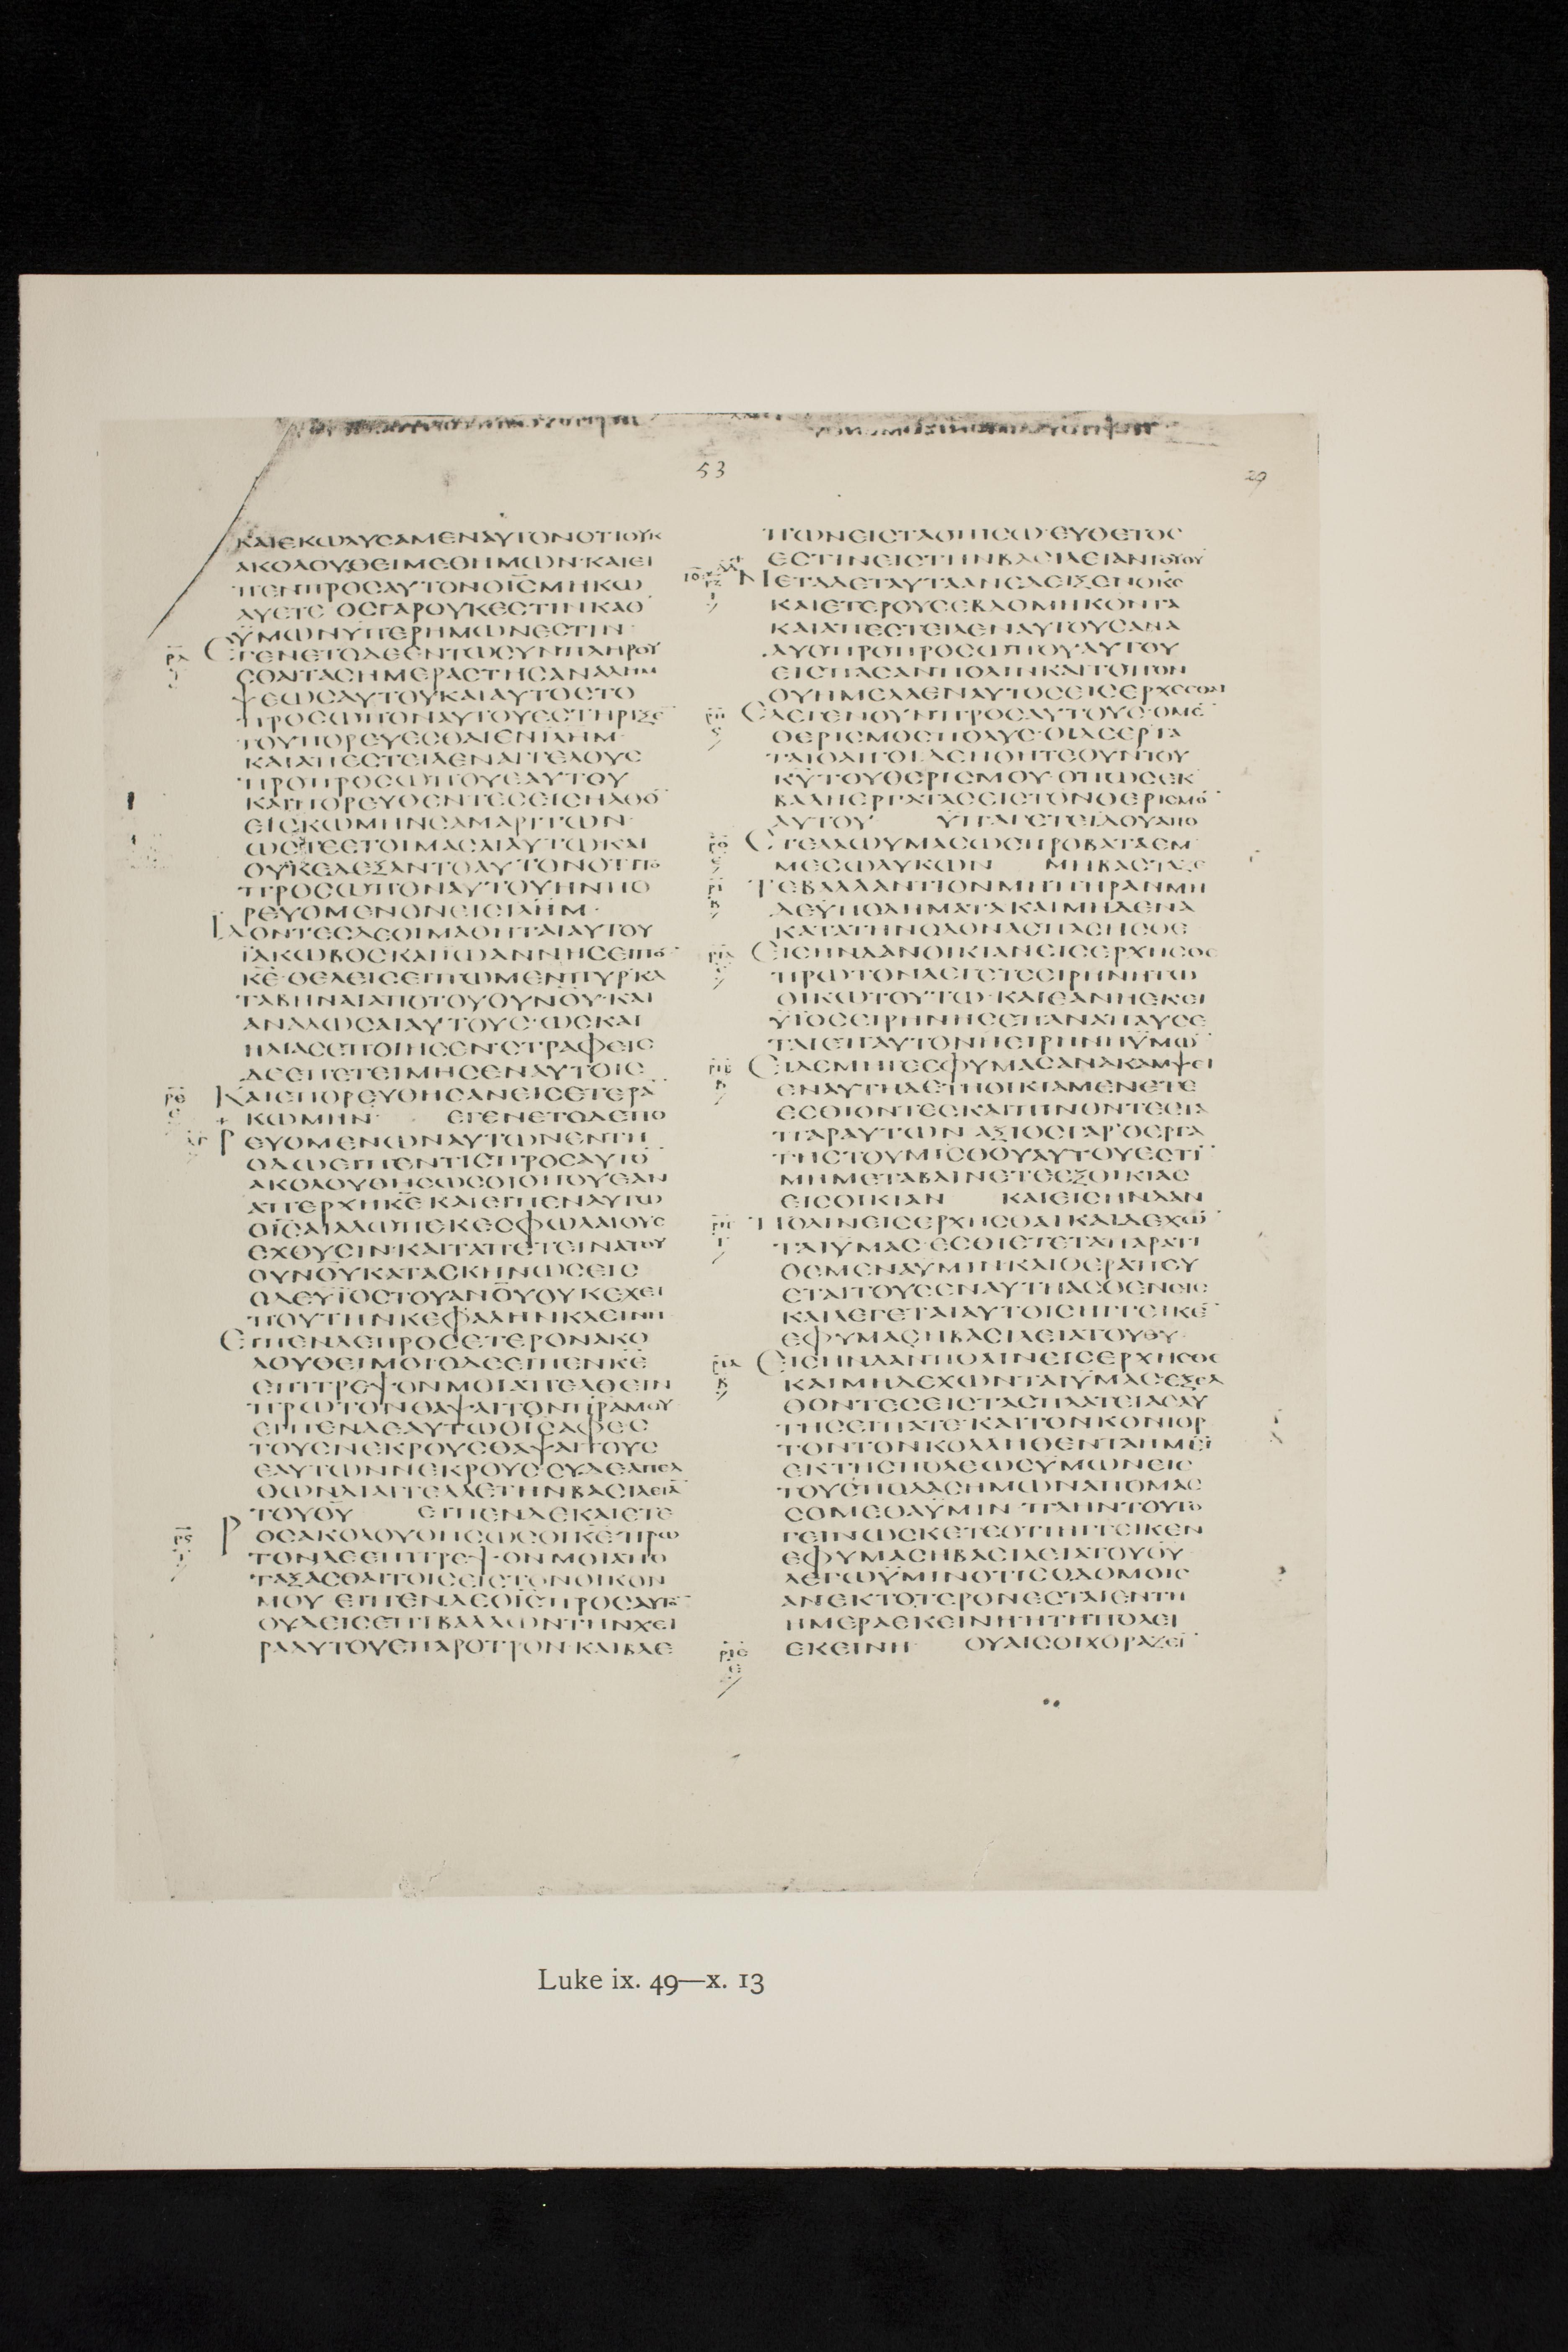 53
29
ΚΑΙΕΚΩΛΥϹΑΜΕΝΑΥΤΟΝΟΤΙΟΥΚ
ΑΚΟΛΟΥΘΕΙΜΕΘΗΜΩΝ·ΚΑΙΕΙ
ΠΕΝΠΡΟϹΑΥΤΟΝΟΙ̅Ϲ̅ΜΗΚΩ
ΛΥΕΤΕ ΟϹΓΑΡΟΥΚΕϹΤΙΝΚΑΘ
ΫΜΩΝΥΠΕΡΗΜΩΝΕϹΤΙΝ·
ΕΓΕΝΕΤΟΔΕΕΝΤΩϹΥΜΠΛΗΡΟΥ
ϹΘΑΙΤΑϹΗΜΕΡΑϹΤΗϹΑΝΑΛΗΜ
ΨΕΩϹΑΥΤΟΥΚΑΙΑΥΤΟϹΤΟ
ΠΡΟϹΩΠΟΝΑΥΤΟΥΕϹΤΗΡΙΞΕ̅
ΤΟΥΠΟΡΕΥΕϹΘΑΙΕΝΙ̅Λ̅Η̅Μ̅·
ΚΑΙΑΠΕϹΤΕΙΛΕΝΑΓΓΕΛΟΥϹ
ΠΡΟΠΡΟϹΩΠΟΥΕΑΥΤΟΥ
ΚΑΙΠΟΡΕΥΘΕΝΤΕϹΕΙϹΗΛΘΟ̅
ΕΙϹΚΩΜΗΝϹΑΜΑΡΙΤΩΝ·
ΩϹΤΕΕΤΟΙΜΑϹΑΙΑΥΤΩΚΑΙ
ΟΥΚΕΔΕΞΑΝΤΟΑΥΤΟΝΟΤΙΤΟ
ΠΡΟϹΩΠΟΝΑΥΤΟΥΗΝΠΟ
ΡΕΥΟΜΕΝΟΝΕΙϹΙ̅Λ̅Η̅Μ̅·
ΙΔΟΝΤΕϹΔΕΟΙΜΑΘΗΤΑΙΑΥΤΟΥ
ΪΑΚΩΒΟϹΚΑΙΪΩΑΝΝΗϹΕΙΠΟ̅
Κ̅Ε̅·ΘΕΛΕΙϹΕΙΠΩΜΕΝΠΥΡΚΑ
ΤΑΒΗΝΑΙΑΠΟΤΟΥΟΥ̅Ν̅Ο̅Υ̅·ΚΑΙ
ΑΝΑΛΩϹΑΙΑΥΤΟΥϹ·ΩϹΚΑΙ
ΗΛΙΑϹΕΠΟΙΗϹΕΝ·ϹΤΡΑΦΕΙϹ
ΔΕΕΠΕΤΕΙΜΗϹΕΝΑΥΤΟΙϹ
ΚΑΙΕΠΟΡΕΥΘΗϹΑΝΕΙϹΕΤΕΡΑ̅
ΚΩΜΗΝ· ΕΓΕΝΕΤΟΔΕΠΟ
ΡΕΥΟΜΕΝΩΝΑΥΤΩΝΕΝΤΗ
ΟΔΩΕΙΠΕΝΤΙϹΠΡΟϹΑΥΤΟ̅
ΑΚΟΛΟΥΘΗϹΩϹΟΙΟΠΟΥΕΑΝ
ΑΠΕΡΧΗΚ̅Ε̅ ΚΑΙΕΙΠΕΝΑΥΤΩ
ΟΙ̅Ϲ̅ΑΙΑΛΩΠΕΚΕϹΦΩΛΑΙΟΥϹ
ΕΧΟΥϹΙΝ·ΚΑΙΤΑΠΕΤΕΙΝΑΤΟΥ
ΟΥ̅Ν̅Ο̅Υ̅ΚΑΤΑϹΚΗΝΩϹΕΙϹ
ΟΔΕΥΪΟϹΤΟΥΑ̅Ν̅Ο̅Υ̅ΟΥΚΕΧΕΙ
ΠΟΥΤΗΝΚΕΦΑΛΗΝΚΛΕΙΝΗ
ΕΙΠΕΝΔΕΠΡΟϹΕΤΕΡΟΝΑΚΟ
ΛΟΥΘΕΙΜΟΙΟΔΕΕΙΠΕΝΚ̅Ε̅
ΕΠΙΤΡΕΨΟΝΜΟΙΑΠΕΛΘΕΙΝ
ΠΡΩΤΟΝΘΑΨΑΙΤΟΝΠ̅Ρ̅ΑΜΟΥ
ΕΙΠΕΝΔΕΑΥΤΩΟΙ̅Ϲ̅ΑΦΕϹ
ΤΟΥϹΝΕΚΡΟΥϹΘΑΨΑΙΤΟΥϹ
ΕΑΥΤΩΝΝΕΚΡΟΥϹ·ϹΥΔΕΑΠΕΛ
ΘΩΝΔΙΑΓΓΕΛΛΕΤΗΝΒΑϹΙΛΕΙΑ̅
ΤΟΥΘ̅Υ̅ ΕΙΠΕΝΔΕΚΑΙΕΤΕ
ΡΟϹΑΚΟΛΟΥΘΗϹΩϹΟΙΚ̅Ε̅·ΠΡΩ
ΤΟΝΔΕΕΠΙΤΡΕΨΟΝΜΟΙΑΠΟ
ΤΑΞΑϹΘΑΙΤΟΙϹΕΙϹΤΟΝΟΙΚΟΝ
ΜΟΥ ΕΙΠΕΝΔΕΟΙ̅Ϲ̅ΠΡΟϹΑΥΤΟ̅
ΟΥΔΕΙϹΕΠΙΒΑΛΛΩΝΤΗΝΧΕΙ
ΡΑΑΥΤΟΥΕΠΑΡΟΤΡΟΝ·ΚΑΙΒΛΕ
ΠΩΝΕΙϹΤΑΟΠΙϹΩ·ΕΥΘΕΤΟϹ
ΕϹΤΙΝΕΙϹΤΗΝΒΑϹΙΛΕΙΑΝΤΟΥΘ̅Υ̅
ΜΕΤΑΔΕΤΑΥΤΑΑΝΕΔΕΙΞΕΝΟΚ̅Ϲ̅
ΚΑΙΕΤΕΡΟΥϹΕΒΔΟΜΗΚΟΝΤΑ
ΚΑΙΑΠΕϹΤΕΙΛΕΝΑΥΤΟΥϹΑΝΑ
ΔΥΟΠΡΟΠΡΟϹΩΠΟΥΑΥΤΟΥ
ΕΙϹΠΑϹΑΝΠΟΛΙΝΚΑΙΤΟΠΟΝ
ΟΥΗΜΕΛΛΕΝΑΥΤΟϹΕΙϹΕΡΧΕϹΘΑΙ
ΕΛΕΓΕΝΟΥΝΠΡΟϹΑΥΤΟΥϹ·ΟΜΕ̅
ΘΕΡΙϹΜΟϹΠΟΛΥϹ·ΟΙΔΕΕΡΓΑ
ΤΑΙΟΛΙΓΟΙ ΔΕΗΘΗΤΕΟΥΝΤΟΥ
Κ̅Υ̅·ΤΟΥΘΕΡΙϹΜΟΥ·ΟΠΩϹΕΚ
ΒΑΛΗΕΡΓΑΤΑϹΕΙϹΤΟΝΘΕΡΙϹΜΟ̅
ΑΥΤΟΥ ΫΠΑΓΕΤΕΙΔΟΥΑΠΟ
ϹΤΕΛΛΩΥΜΑϹΩϹΠΡΟΒΑΤΑΕΜ
ΜΕϹΩΛΥΚΩΝ ΜΗΒΑϹΤΑΖΕ
ΤΕΒΑΛΛΑΝΤΙΟΝΜΗΠΗΡΑΝΜΗ
ΔΕΫΠΟΔΗΜΑΤΑΚΑΙΜΗΔΕΝΑ
ΚΑΤΑΤΗΝΟΔΟΝΑϹΠΑϹΗϹΘΕ
ΕΙϹΗΝΔΑΝΟΙΚΙΑΝΕΙϹΕΡΧΗϹΘΕ
ΠΡΩΤΟΝΛΕΓΕΤΕΕΙΡΗΝΗΤΩ
ΟΙΚΩΤΟΥΤΩ·ΚΑΙΕΑΝΗΕΚΕΙ
ΥΪΟϹΕΙΡΗΝΗϹΕΠΑΝΑΠΑΥϹΕ
ΤΑΙΕΠΑΥΤΟΝΗΕΙΡΗΝΗΫΜΩ̅
ΕΙΔΕΜΗΓΕΕΦΥΜΑϹΑΝΑΚΑΜΨΕΙ
ΕΝΑΥΤΗΔΕΤΗΟΙΚΙΑΜΕΝΕΤΕ
ΕϹΘΙΟΝΤΕϹΚΑΙΠΙΝΟΝΤΕϹΤΑ
ΠΑΡΑΥΤΩΝ ΑΞΙΟϹΓΑΡΟΕΡΓΑ
ΤΗϹΤΟΥΜΙϹΘΟΥΑΥΤΟΥΕϹΤΙ̅
ΜΗΜΕΤΑΒΑΙΝΕΤΕΕΞΟΙΚΙΑϹ
ΕΙϹΟΙΚΙΑΝ ΚΑΙΕΙϹΗΝΔΑΝ
ΠΟΛΙΝΕΙϹΕΡΧΗϹΘΑΙΚΑΙΔΕΧΩ̅
ΤΑΙΫΜΑϹ·ΕϹΘΙΕΤΕΤΑΠΑΡΑΤΙ
ΘΕΜΕΝΑΫΜΙΝΚΑΙΘΕΡΑΠΕΥ
ΕΤΑΙΤΟΥϹΕΝΑΥΤΗΑϹΘΕΝΕΙϹ
ΚΑΙΛΕΓΕΤΑΙΑΥΤΟΙϹΗΓΓΕΙΚΕ̅
ΕΦΥΜΑϹΗΒΑϹΙΛΕΙΑΤΟΥΘ̅Υ̅·
ΕΙϹΗΝΔΑΝΠΟΛΙΝΕΙϹΕΡΧΗϹΘΕ
ΚΑΙΜΗΔΕΧΩΝΤΑΙΫΜΑϹΕΞΕΛ
ΘΟΝΤΕϹΕΙϹΤΑϹΠΛΑΤΕΙΑϹΑΥ
ΤΗϹΕΙΠΑΤΕ·ΚΑΙΤΟΝΚΟΝΙΟΡ
ΤΟΝΤΟΝΚΟΛΛΗΘΕΝΤΑΗΜΕΙ̅
ΕΚΤΗϹΠΟΛΕΩϹΫΜΩΝΕΙϹ
ΤΟΥϹΠΟΔΑϹΗΜΩΝΑΠΟΜΑϹ
ϹΟΜΕΘΑΫΜΙΝ ΠΛΗΝΤΟΥΤΟ
ΓΕΙΝΩϹΚΕΤΕΟΤΙΗΓΓΕΙΚΕΝ
ΕΦΥΜΑϹΗΒΑϹΙΛΕΙΑΤΟΥΘ̅Υ̅·
ΛΕΓΩΫΜΙΝΟΤΙϹΟΔΟΜΟΙϹ
ΑΝΕΚΤΟΤΕΡΟΝΕϹΤΑΙΕΝΤΗ
ΗΜΕΡΑΕΚΕΙΝΗ·Η·ΤΗΠΟΛΕΙ
ΕΚΕΙΝΗ· ΟΥΑΙϹΟΙΧΟΡΑΖΕΙ̅
Luke ix. 49—x. 13